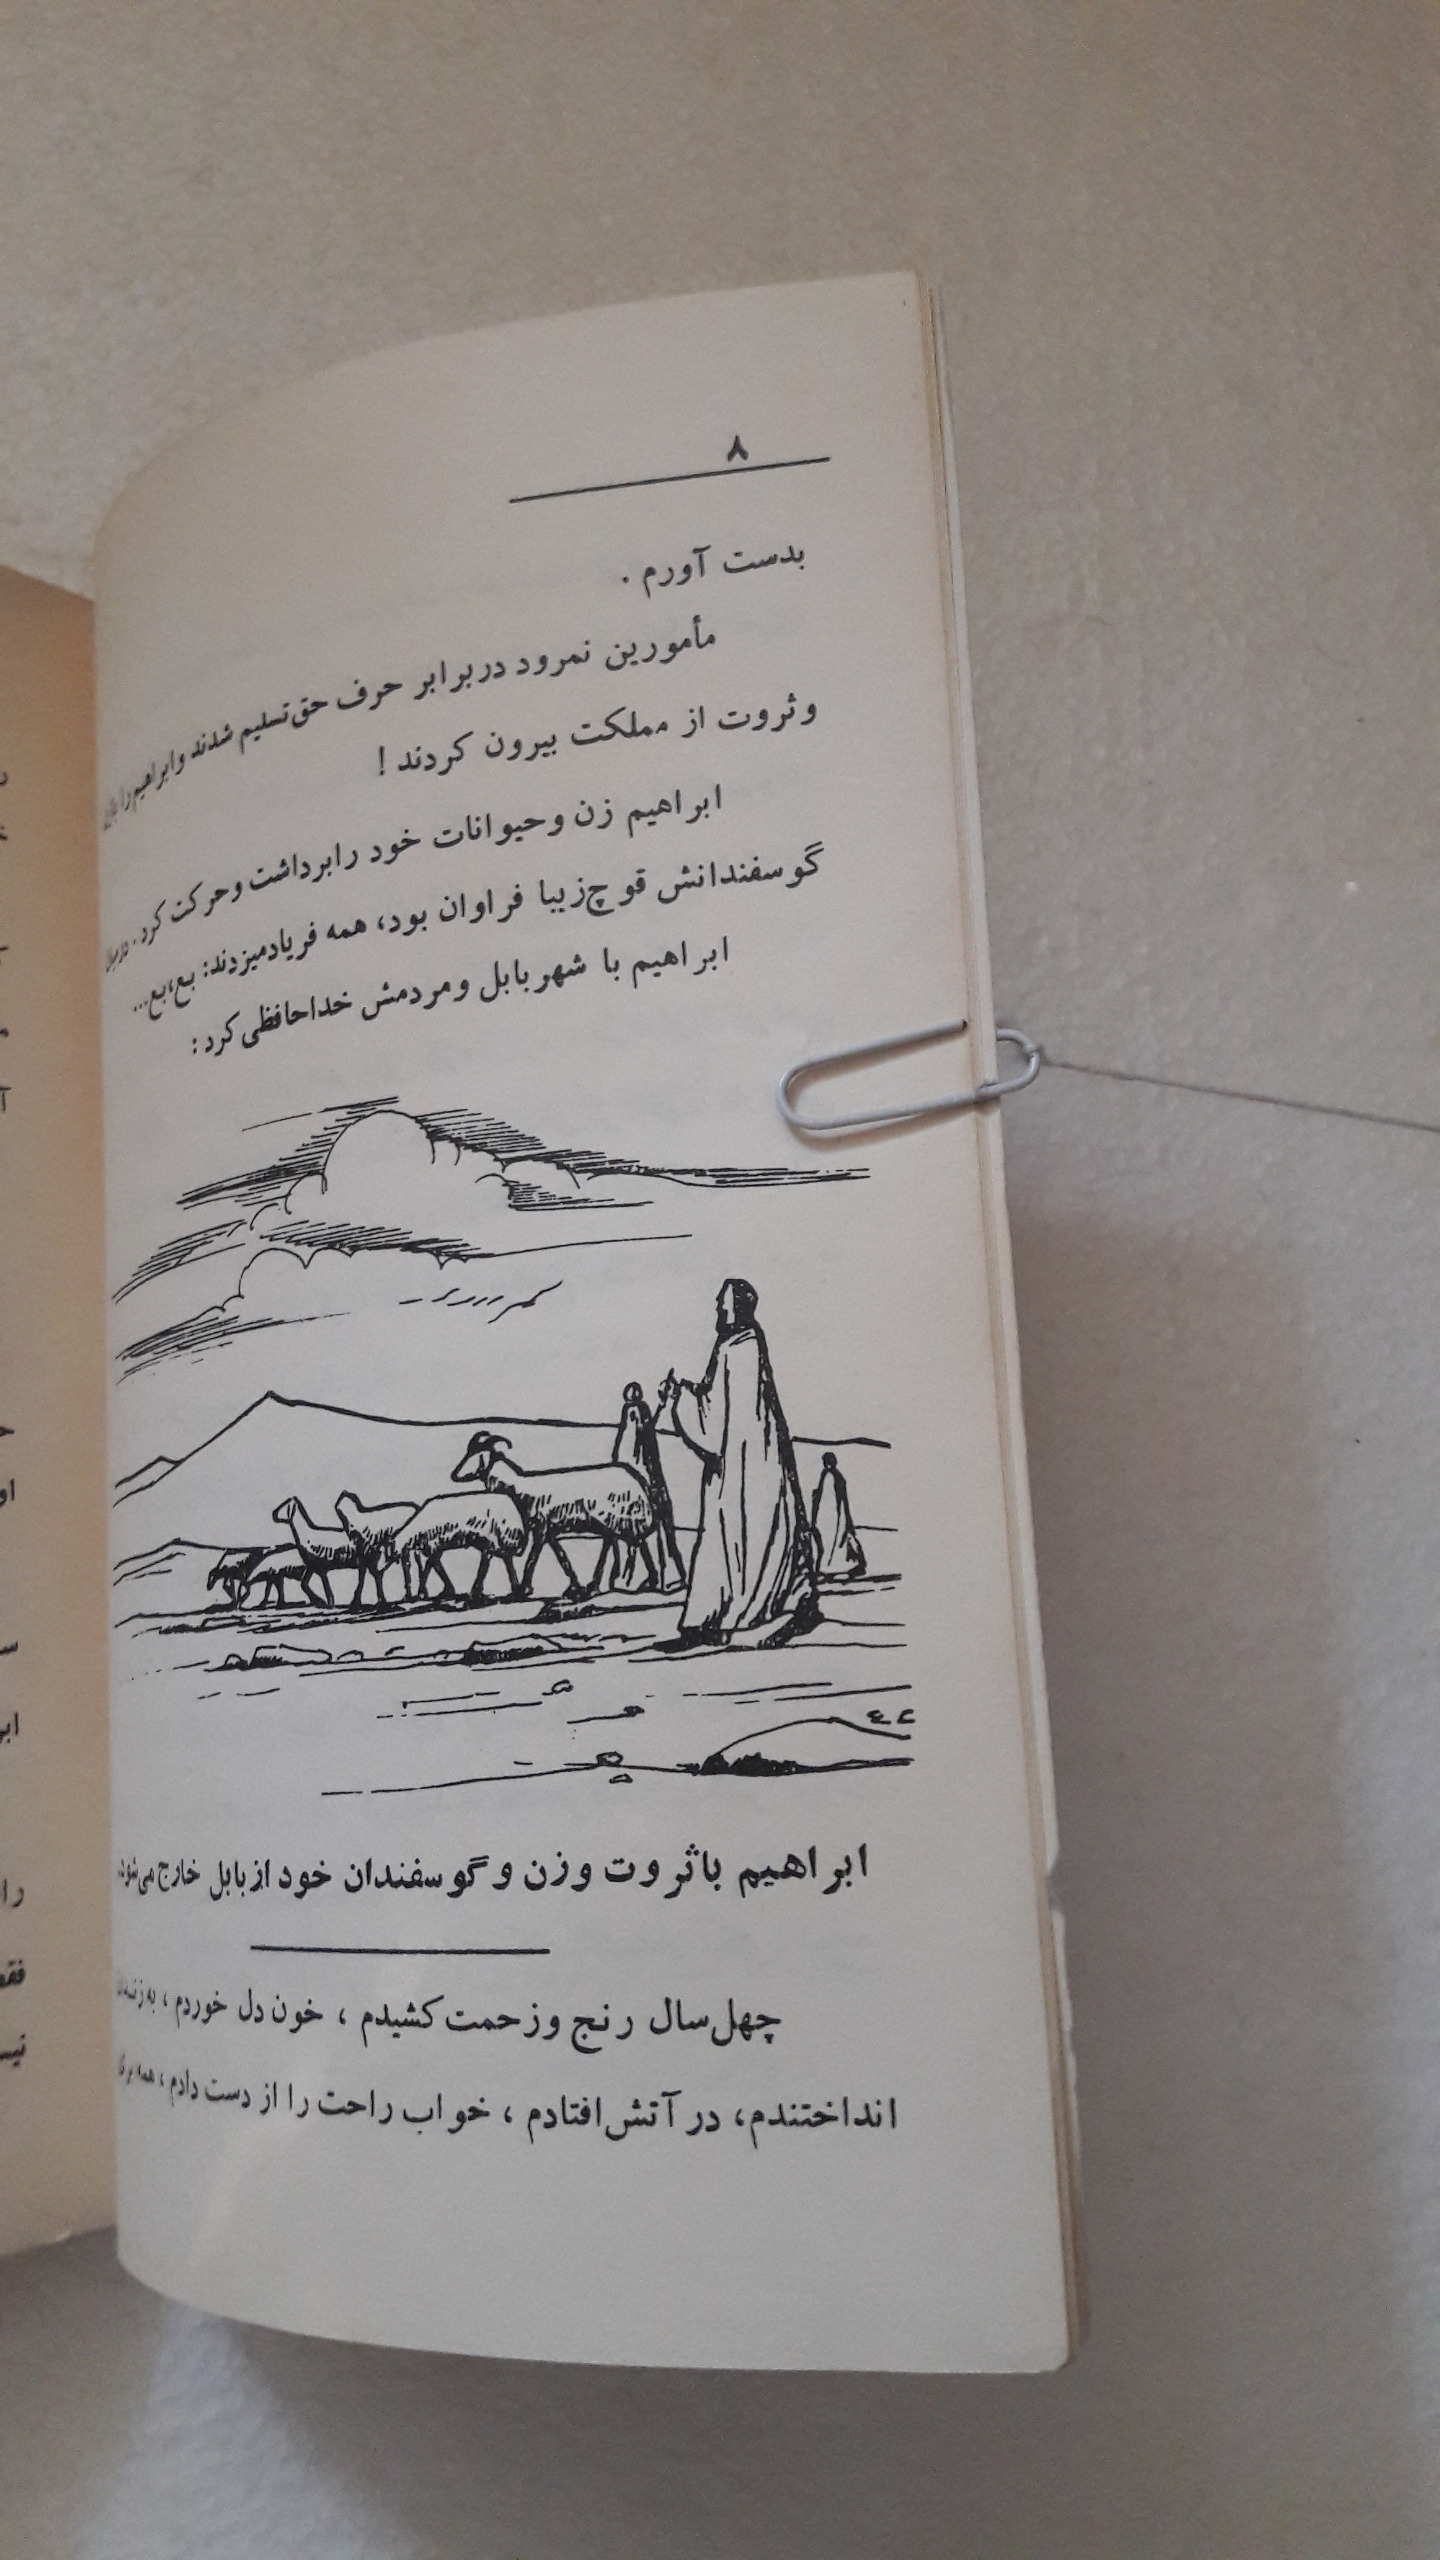 ۸
بدست آورم .
مأمورین نمرود دربرابر حرف حق تسلیم شدند وابراهیم را با زن
وثروت از مملکت بیرون کردند !
ابراهیم زن وحیوانات خود رابرداشت وحرکت کرد. در میان
گوسفندانش قوچ زیبا فراوان بود، همه فریادمیزدند: بع،بع...
ابراهیم با شهر بابل ومردمش خداحافظی کرد :
ابراهیم باثروت وزن وگوسفندان خود از بابل خارج می‌شود.
چهل سال رنج وزحمت کشیدم ، خون دل خوردم ، به زندان
انداختندم، در آتش افتادم ، خواب راحت را از دست دادم ، همه برای